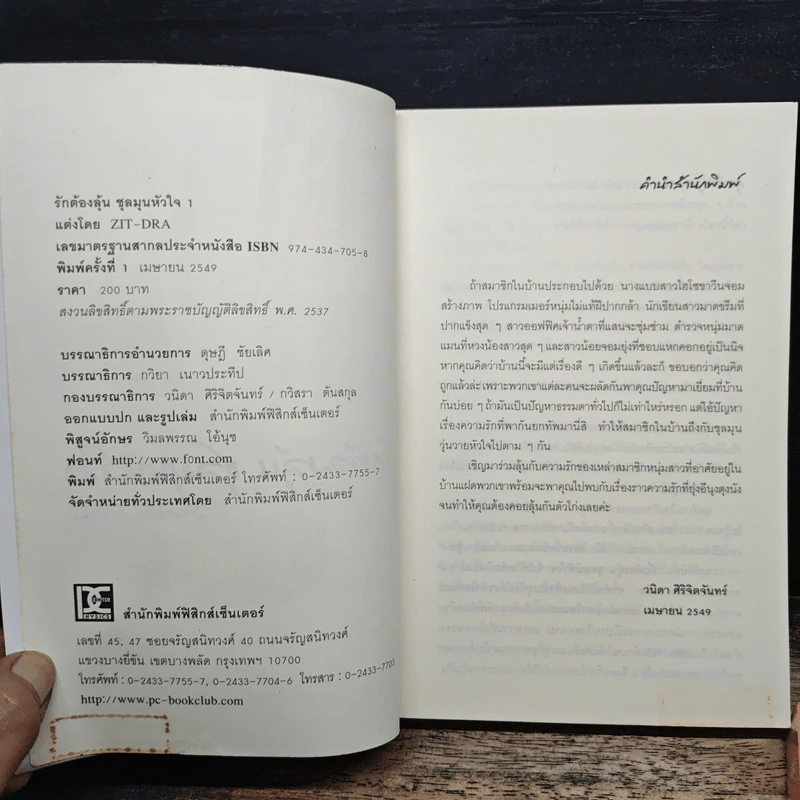 รักต้องลุ้น ชุลมุนหัวใจ 1
แต่งโดย ZIT-DRA
เลขมาตรฐานสากลประจำหนังสือ ISBN 974-434-705-8
พิมพ์ครั้งที่ 1 เมษายน 2549
ราคา 200 บาท
สงวนลิขสิทธิ์ตามพระราชบัญญัติลิขสิทธิ์ พ.ศ. 2537
บรรณาธิการอำนวยการ ดุษฎี ชัยเลิศ
บรรณาธิการ กวิยา เนาวประทีป
กองบรรณาธิการ วนิดา ศิริจิตจันทร์ / กวิสรา ตันสกุล
ออกแบบปก และรูปเล่ม สำนักพิมพ์ฟิสิกส์เซ็นเตอร์
พิสูจน์อักษร วิมลพรรณ โอ้นุช
ฟอนท์ http://www.font.com
พิมพ์ สำนักพิมพ์ฟิสิกส์เซ็นเตอร์ โทรศัพท์ : 0-2433-7755-7
จัดจำหน่ายทั่วประเทศโดย สำนักพิมพ์ฟิสิกส์เซ็นเตอร์
PHYSICS CENTER
สำนักพิมพ์ฟิสิกส์เซ็นเตอร์
เลขที่ 45, 47 ซอยจรัญสนิทวงศ์ 40 ถนนจรัญสนิทวงศ์
แขวงบางยี่ขัน เขตบางพลัด กรุงเทพฯ 10700
โทรศัพท์ : 0-2433-7755-7, 0-2433-7704-6 โทรสาร : 0-2433-7703
http://www.pc-bookclub.com
คำนำสำนักพิมพ์
ถ้าสมาชิกในบ้านประกอบไปด้วย นางแบบสาวไฮโซขาวีนจอม
สร้างภาพ โปรแกรมเมอร์หนุ่มไม่แท้ฝีปากกล้า นักเขียนสาวมาดขรึมที่
ปากแข็งสุด ๆ สาวออฟฟิศเจ้าน้ำตาที่แสนจะซุ่มซ่าม ตำรวจหนุ่มมาด
แมนที่หวงน้องสาวสุด ๆ และสาวน้อยจอมยุ่งที่ชอบแหกคอกอยู่เป็นนิจ
หากคุณคิดว่าบ้านนี้จะมีแต่เรื่องดี ๆ เกิดขึ้นแล้วละก็ ขอบอกว่าคุณคิด
ถูกแล้วล่ะ เพราะพวกเขาแต่ละคนจะผลัดกันพาคุณปัญหามาเยี่ยมที่บ้าน
กันบ่อย ๆ ถ้ามันเป็นปัญหาธรรมดาทั่วไปก็ไม่เท่าไหร่หรอก แต่ไอ้ปัญหา
เรื่องความรักที่พากันยกทัพมานี่สิ ทำให้สมาชิกในบ้านถึงกับชุลมุน
วุ่นวายหัวใจไปตาม ๆ กัน
เชิญมาร่วมลุ้นกับความรักของเหล่าสมาชิกหนุ่มสาวที่อาศัยอยู่ใน
บ้านแฝดพวกเขาพร้อมจะพาคุณไปพบกับเรื่องราวความรักที่ยุ่งอีนุงตุงนัง
จนทำให้คุณต้องคอยลุ้นกันตัวโก่งเลยค่ะ
วนิดา ศิริจิตจันทร์
เมษายน 2549